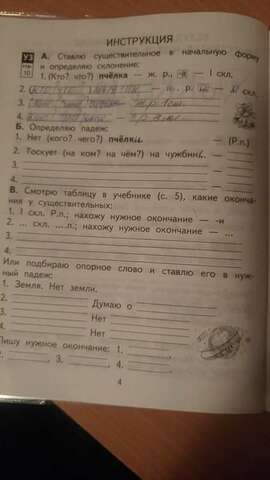 ИНСТРУКЦИЯ
У3
10
А. Ставлю существительное в начальную форму
и определяю склонение:
1. (Кто? что?) пчёлка — ж. р., -а — I скл.
2.
3.
4.
Б. Определяю падеж:
1. Нет (кого? чего?) пчёлки — (Р.п.)
2. Тоскует (на ком? на чём?) на чужбин
3.
4.
В. Смотрю таблицу в учебнике (с. 5), какие оконча-
ния у существительных:
1. I скл. Р.п.; нахожу нужное окончание — -и
2. ... скл. ....п.; нахожу нужное окончание — ...
3.
4.
Или подбираю опорное слово и ставлю его в нуж-
ный падеж:
1. Земля. Нет земли.
2. Думаю о
3. Нет
4. Нет
Пишу нужное окончание: 1.
2. , 3. , 4.
4